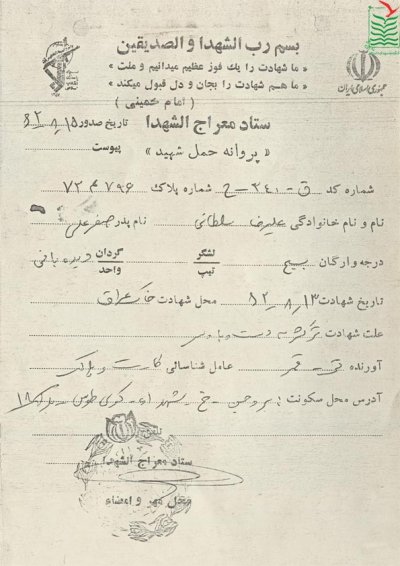 بسم رب الشهدا والصدیقین
« ما شهادت را یك فوز عظیم میدانیم و ملت »
« ما هم شهادت را بجان و دل قبول میکند »
( امام خمینی )
جمهوری اسلامی ایران
ستاد معراج الشهدا
تاریخ صدور ۶۲/۸/۱۵
پیوست
« پروانه حمل شهید »
شماره کد ق - ۳۴۱۰ - ح شماره پلاك ۷۹۶
نام و نام خانوادگی علیرضا سلطانی نام پدر صفرعلی
درجه و ارگان بسیج لشگر تیپ گردان واحد دیده بانی
تاریخ شهادت ۶۲/۸/۱۳ محل شهادت خاک عراق
علت شهادت ترکش به دست و
آورنده عامل شناسائی کارت و پلاک
آدرس محل سکونت بروجن - خ - شهدای - کوی طوس - پلاک ۱۸
ستاد معراج الشهدا
محل مهر و امضاء